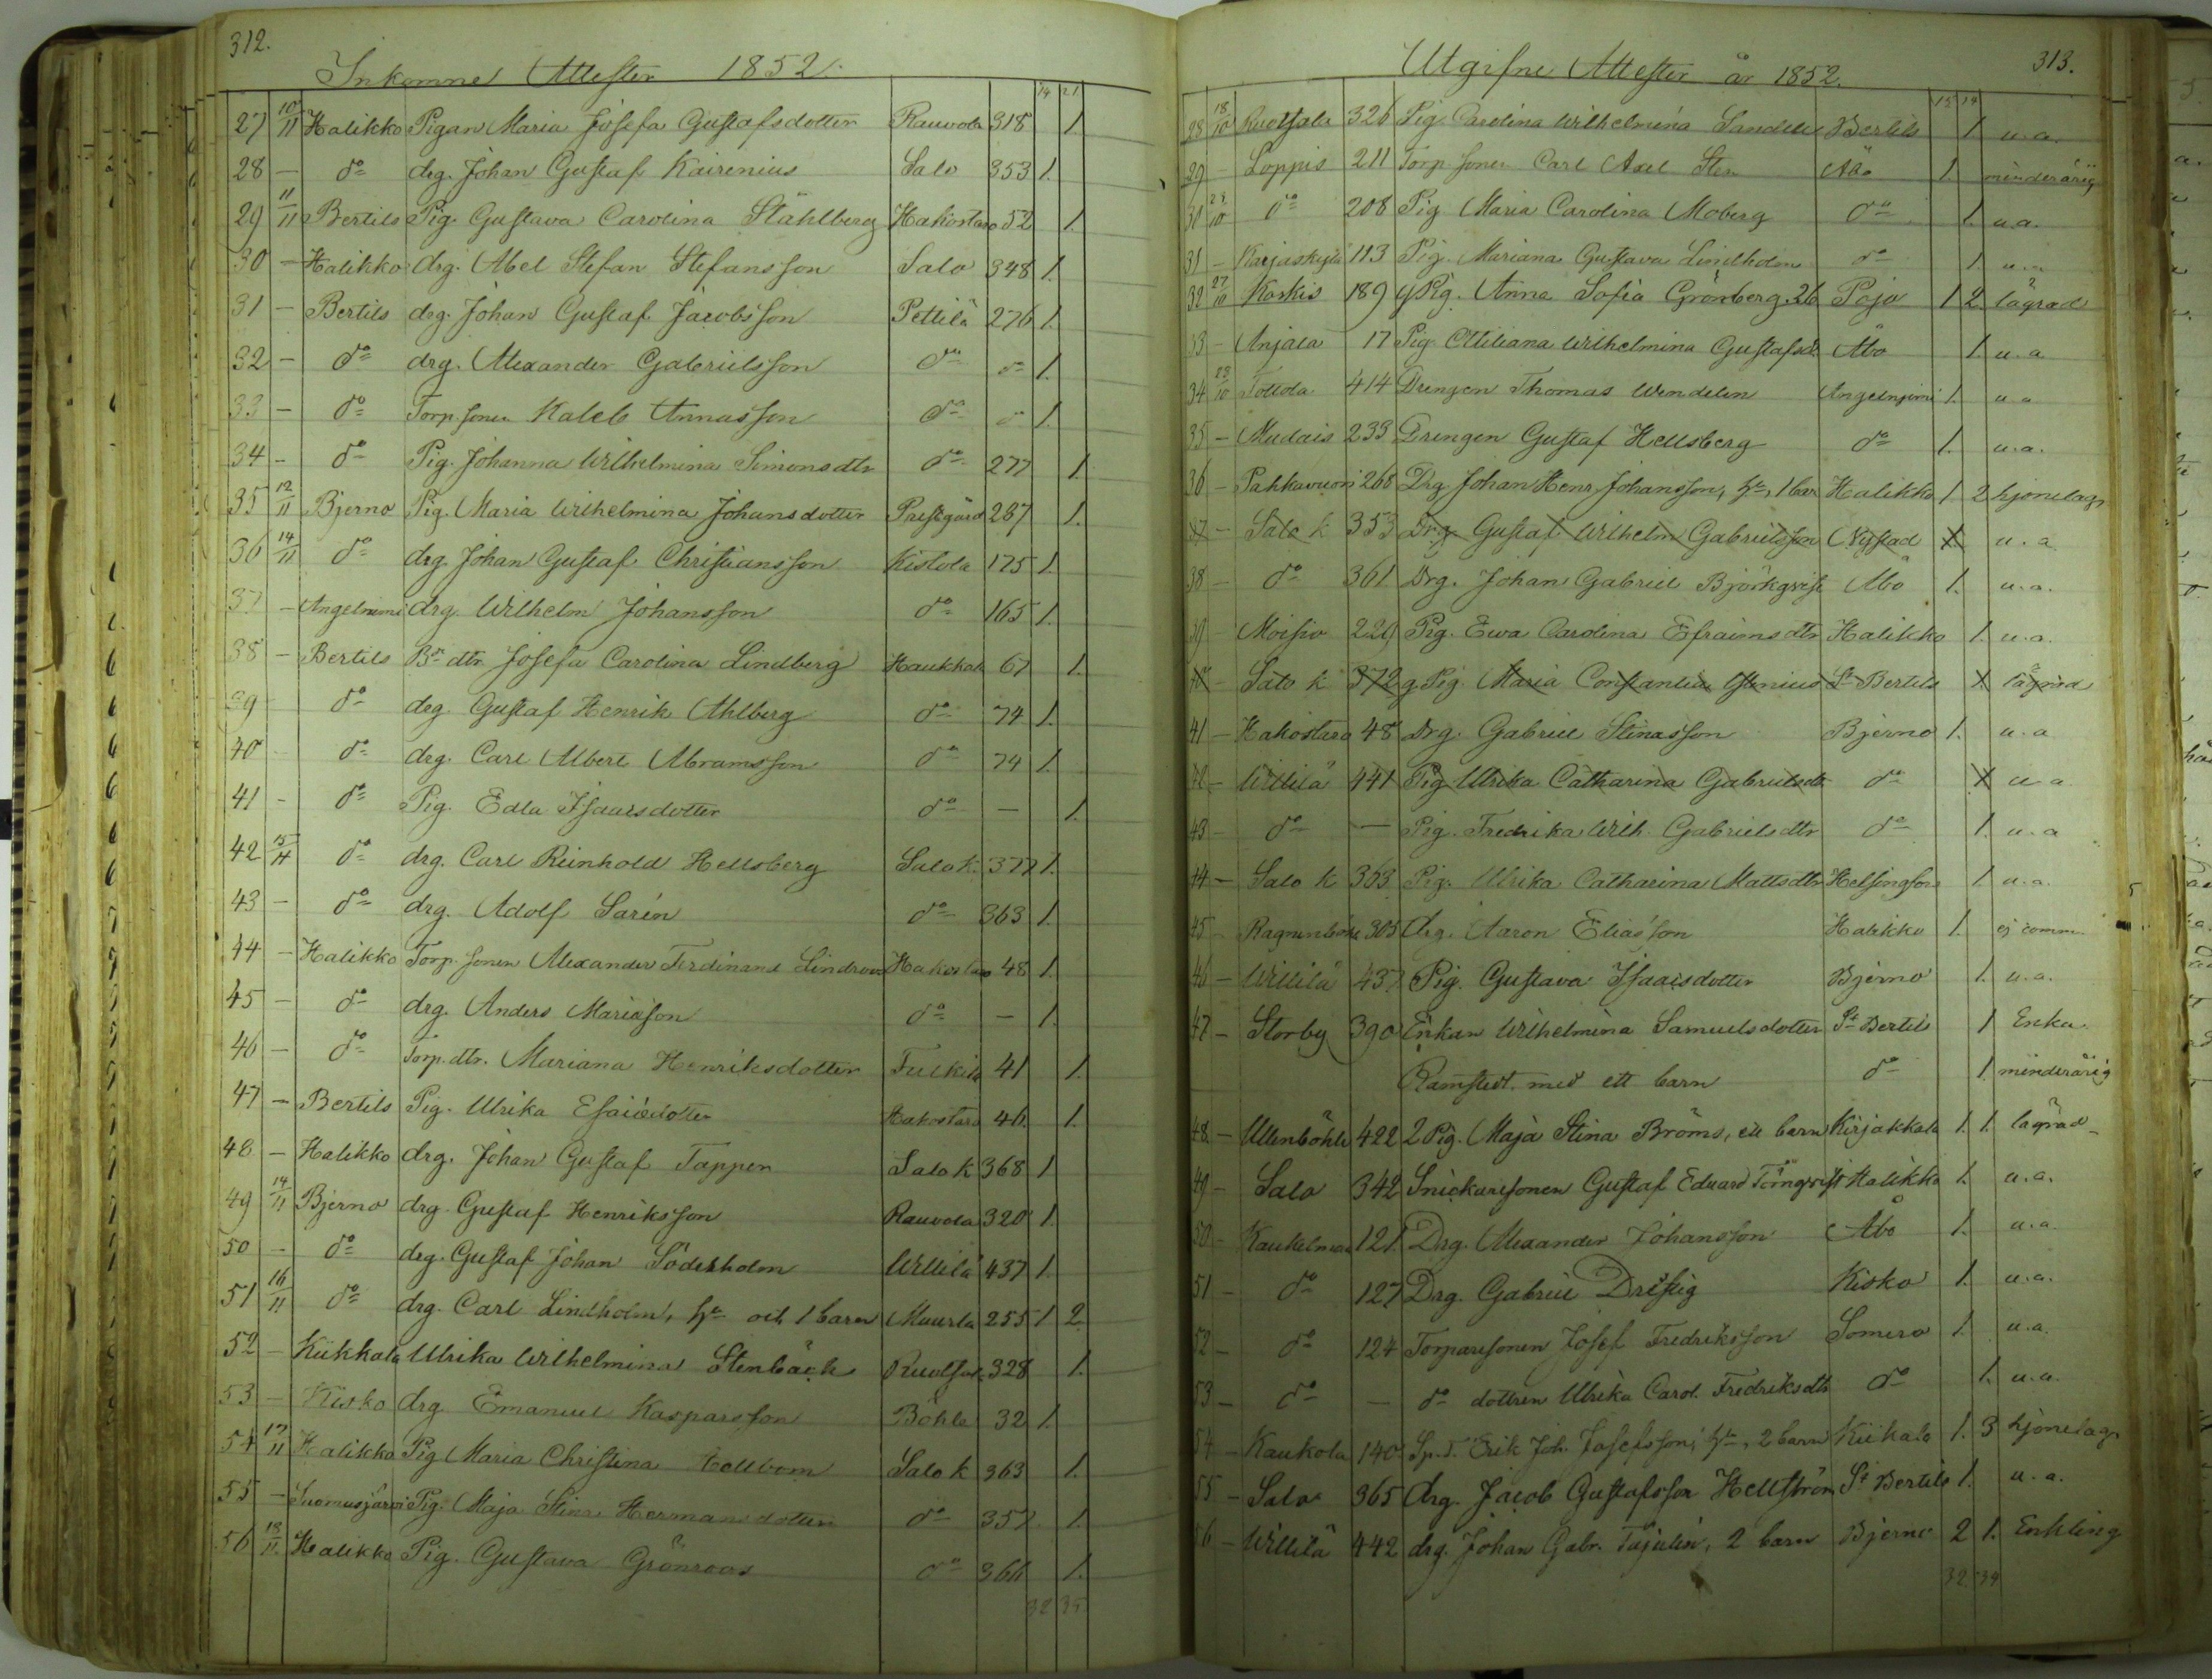 312.
Inkomne Attester 1852.
14 21
27 10/11 Halikko Pigan Maria Josefa Gustafsdotter Rauvola 318 1.
28 — do drg. Johan Gustaf Kairenius Salo 353 1.
29 11/11 Bertils Pig. Gustava Carolina Ståhlberg Hakostaro 52 1.
30 — Halikko drg. Abel Stefan Stefansson Salo 348 1.
31 — Bertils drg. Johan Gustaf Jacobsson Pettilä 276 1.
32 — do drg. Alexander Gabrielsson do do 1.
33 — do Torp. sonen Kaleb Annasson do do 1.
34 — do Pig. Johanna Wilhelmina Simonsdtr do 277 1.
35 12/11 Bjerno Pig. Maria Wilhelmina Johansdotter Prestgård 287 1.
36 14/11 do drg. Johan Gustaf Christiansson Kistola 175 1.
37 — Angelniemi drg. Wilhelm Johansson do 165 1.
38 — Bertils Bn dtr Josefa Carolina Lindberg Haukkala 67 1.
39 do drg. Gustaf Henrik Ahlberg do 74 1.
40 — do drg. Carl Albert Abramsson do 74 1.
41 — do Pig. Edla Isaacsdotter do — 1.
42 15/11 do drg. Carl Reinhold Hellsberg Salo k. 377 1.
43 — do drg. Adolf Sarén do 363 1.
44 — Halikko Torp. sonen Alexander Ferdinand Lindroos Hakostaro 48 1.
45 — do drg. Anders Mariasson do — 1.
46 — do Torp. dtr. Mariana Henriksdotter 41 1.
47 — Bertils Pig. Ulrika Esaiedotter Hakostaro 46 1.
48 — Halikko drg. Johan Gustaf Tappen Salo k 368 1
49 14/11 Bjerno drg. Gustaf Henriksson Rauvola 320 1.
50 — do drg. Gustaf Johan Söderholm Willilä 437 1.
51 16/11 do drg. Carl Lindholm, hu och 1 barn Muurla 255 1 2
52 — Kiikkala Ulrika Wilhelmina Stenbäck Ruotsala 328 1.
53 — Kisko drg Emanuel Kasparsson Böhle 32 1.
54 17/11 Halikko Pig Maria Christina Hellbom Salo k 363 1.
55 — Suomusjärvi Pig. Maja Stina Hermansdotter do 357 1.
56 18/11 Halikko Pig. Gustava Grönroos do 366 1.
32 35
313.
Utgifne Attester år 1852.
15 14
28 18/10 Ruotsala 326 Pig. Carolina Wilhelmina Sandelin Bertils 1. u. a.
29 — Loppis 211 Torp. sonen Carl Axel Sten Åbo 1 minderårig
30 23/10 do 208 Pig Maria Carolina Moberg do 1. u. a.
31 — Karjaskylä 113 Pig. Mariana Gustava Lindholm do 1. u. a
32 27/10 Koskis 189 g Pig. Anna Sofia Grönberg. 26 Pojo 1 2 lägrad
33 — Anjala 17 Pig. Ottiliana Wilhelmina Gustafsd. Åbo 1 u. a
34 28/10 Tottola 414 Drengen Thomas Wendelin Angelniemi 1. u a
35 — Mudais 233 Drengen Gustaf Hellsberg do 1. u. a.
36 — Pahkavuori 268 Drg Johan Henr. Johansson, hu, 1 bar Halikko 1 2 hjonelag
37 — Salo k 353 Drg Gustaf Wilhelm Gabrielsson Nystad 1. u. a
38 — do 361 Drg. Johan Gabriel Björkqvist Åbo 1. u. a.
39 — Moisio 229 Pig. Ewa Carolina Efraimsdtr Halikko 1. u. a.
40 — Salo k 372 g Pig. Maria Constantia St Bertils 1. lägrad
41 — Hakostaro 48 Drg. Gabriel Stinasson Bjerno 1. u. a
42 — Willilä 441 Pig Ulrika Catharina Gabrielsdtr do 1 u a
43 — do — Pig. Fredrika Wilh. Gabrielsdtr do 1. u. a
44 — Salo k 363 Pig. Ulrika Catharina Mattsdtr Helsingfors 1 u. a.
45 305 drg. Aaron Eliasson Halikko 1. ej comm.
46 — Willilä 437 Pig. Gustava Isaacsdotter Bjerno 1. u. a.
47 — Storby 390 Enkan Wilhelmina Samuelsdotter St Bertils 1 Enka
Ramstedt med ett barn do 1. minderårig
48 — Ullenböhle 422 2 Pig. Maja Stina Bröms, ett barn Kirjakkala 1. 1. lägrad
49 — Salo 342 Snickaresonen Gustaf Eduard Törnqvist Halikko 1. u. a.
50 — 121. Drg. Alexander Johansson Åbo 1. u. a
51 — do 127 Drg. Gabriel Dristig Kisko 1. u. a.
52 — do 124 Torparesonen Josef Fredriksson Somero 1 u. a.
53 — do — do dottren Ulrika Carol. Fredriksdtr do 1. u. a.
54 — Kaukola 140 Sp. T. Erik Joh. Josefsson, hu, 2 barn Kiikala 1. 3 hjonelag
55 — Salo 365 drg. Jacob Gustafsson Hellström St Bertils 1. u. a.
56 — Willilä 442 drg. Johan Gabr. Tujulin, 2 barn Bjerno 2 1. Enkling
32 34